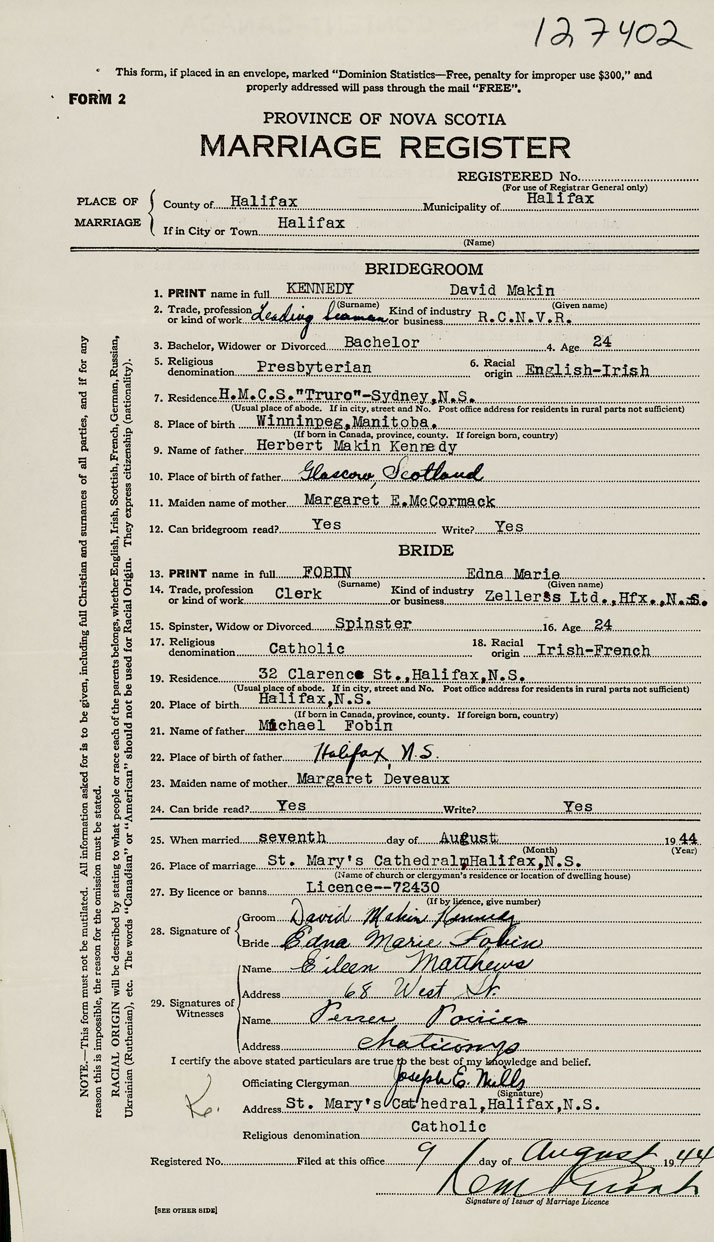 127402
This form, if placed in an envelope, marked "Dominion Statistics—Free, penalty for improper use $300," and
properly addressed will pass through the mail "FREE".
FORM 2
PROVINCE OF NOVA SCOTIA
MARRIAGE REGISTER
REGISTERED No.
(For use of Registrar General only)
PLACE OF MARRIAGE
County of Halifax Municipality of Halifax
If in City or Town Halifax
(Name)
BRIDEGROOM
1. PRINT name in full KENNEDY David Makin
(Surname) (Given name)
2. Trade, profession or kind of work Leading Seaman Kind of industry or business R.C.N.V.R.
3. Bachelor, Widower or Divorced Bachelor 4. Age 24
5. Religious denomination Presbyterian 6. Racial origin English-Irish
7. Residence H.M.C.S."Truro"-Sydney,N.S.
(Usual place of abode. If in city, street and No. Post office address for residents in rural parts not sufficient)
8. Place of birth Winninpeg,Manitoba.
(If born in Canada, province, county. If foreign born, country)
9. Name of father Herbert Makin Kennedy
10. Place of birth of father Glascow, Scotland
11. Maiden name of mother Margaret E.McCormack
12. Can bridegroom read? Yes Write? Yes
BRIDE
13. PRINT name in full FOBIN Edna Marie
(Surname) (Given name)
14. Trade, profession or kind of work Clerk Kind of industry or business Zellers Ltd.,Hfx.,N.S.
15. Spinster, Widow or Divorced Spinster 16. Age 24
17. Religious denomination Catholic 18. Racial origin Irish-French
19. Residence 32 Clarence St.,Halifax,N.S.
(Usual place of abode. If in city, street and No. Post office address for residents in rural parts not sufficient)
20. Place of birth Halifax,N.S.
(If born in Canada, province, county. If foreign born, country)
21. Name of father Michael Fobin
22. Place of birth of father Halifax, N.S.
23. Maiden name of mother Margaret Deveaux
24. Can bride read? Yes Write? Yes
25. When married seventh day of August 1944
(Month) (Year)
26. Place of marriage St. Mary's Cathedral,Halifax,N.S.
(Name of church or clergyman's residence or location of dwelling house)
27. By licence or banns Licence--72430
(If by licence, give number)
28. Signature of Groom David Makin Kennedy
Bride Edna Marie Fobin
29. Signatures of Witnesses
Name Eileen Matthews
Address 68 West St.
Name Poirier
Address
I certify the above stated particulars are true to the best of my knowledge and belief.
Officiating Clergyman Joseph E. Mills
(Signature)
Address St. Mary's Cathedral,Halifax,N.S.
Religious denomination Catholic
Registered No. Filed at this office 9 day of August 1944
Signature of Issuer of Marriage Licence
[SEE OTHER SIDE]
NOTE.—This form must not be mutilated. All information asked for is to be given, including full Christian and surnames of all parties, and if for any
reason this is impossible, the reason for the omission must be stated.
RACIAL ORIGIN will be described by stating to what people or race each of the parents belongs, whether English, Irish, Scottish, French, German, Russian,
Ukrainian (Ruthenian), etc. The words "Canadian" or "American" should not be used for Racial Origin. They express citizenship (nationality).